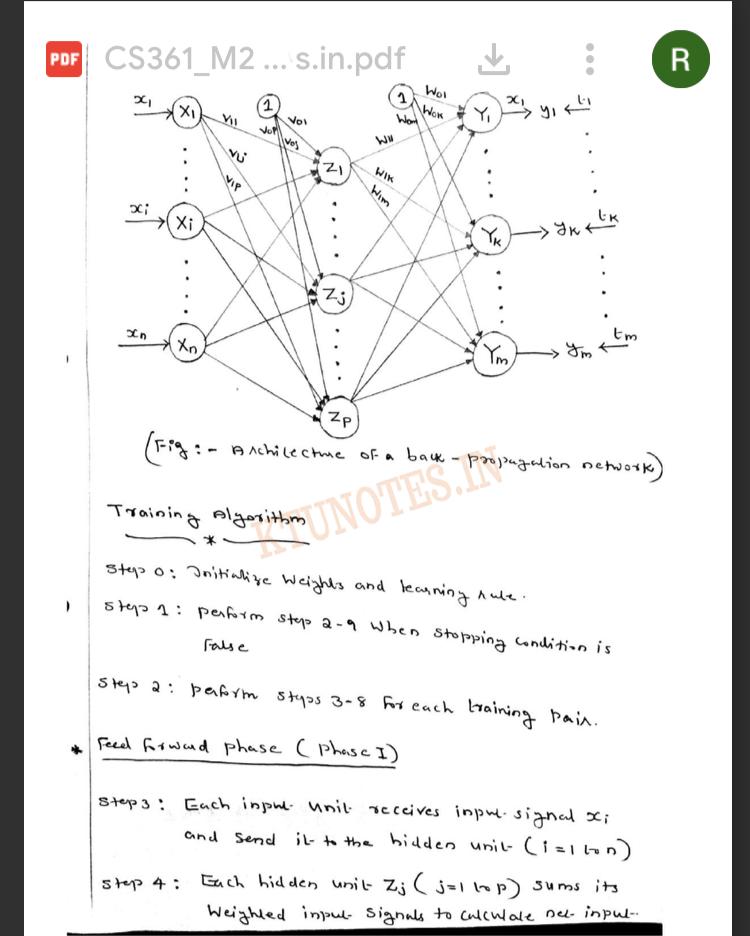 PDF CS361_M2 ... s.in.pdf R
x1 X1 V11 1 V01 1 W01 Y1 x1 y1 t1
V0P V0j W0K W0m
V1j V1P Z1 W11 W1K W1m
xi Xi YK yK tK
Zj
xn Xn Ym ym tm
ZP
(Fig :- Architecture of a back-propagation network)
KTUNOTES.IN
Training Algorithm
*
Step 0: Initialize weights and learning rule.
Step 1: perform step 2-9 when stopping condition is
False
Step 2: perform steps 3-8 for each training pair.
* Feed forward phase (Phase I)
Step 3: Each input unit receives input signal xi
and send it to the hidden unit (i=1 to n)
Step 4: Each hidden unit Zj (j=1 to p) sums its
weighted input signals to calculate net input